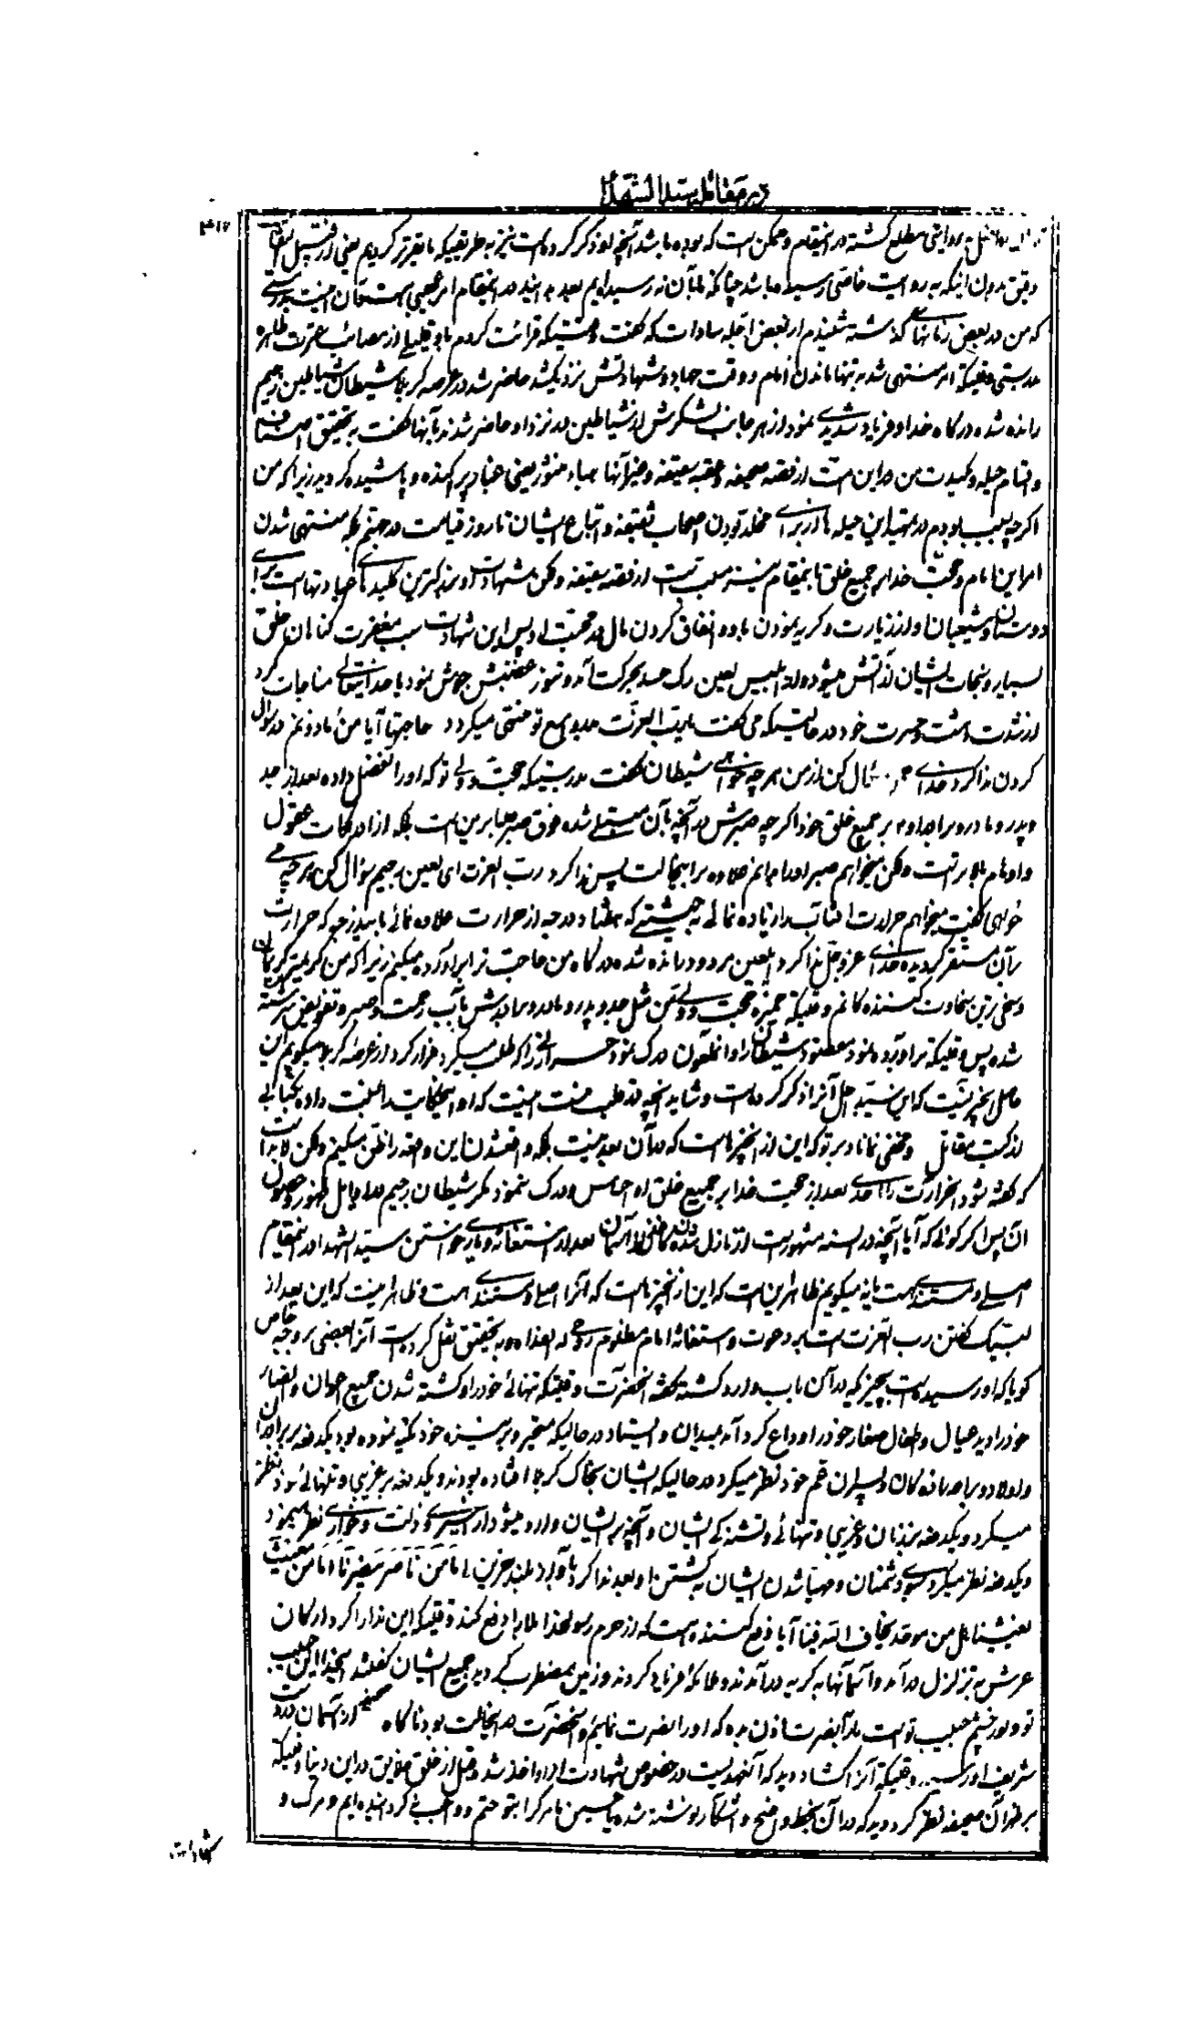 در مقاتل سید الشهدا
۳۱۷
بروایتی مطلع گشته در اینمقام و ممکن است که بوده باشد آنچه او ذکر کرده است نیز بطریقیکه ما تقریر کردیم یعنی از قبیل
و بدون اینکه به روایت خاصی رسیده باشد چنانکه ما بآن نرسیده‌ایم بعد بدانید در اینمقام امر عجیبی است و آن اینست بدرستی
که من در بعض زمانهای گذشته شنیدم از بعض اجله سادات که گفت وقتیکه قرائت کردم باو قلیلی از مصائب عترت طاهره
بدرستی وقتیکه امر منتهی شد به تنها ماندن امام و وقت جهاد و شهادتش نزدیک شد حاضر شد در عرصه کربلا شیطان شیاطین رجیم
رانده شده درگاه خدا و فریاد شدیدی نمود از هر جانب لشکرش از شیاطین در نزد او حاضر شدند بآنها گفت بتحقیق
و تمام حیله و کیدت من در این امت از قصه صحیفه و عقبه سقیفه و غیر آنها هباء منثور یعنی غبار پراکنده و پاشیده گردید زیرا که من
اگرچه سبب بودم در این حیله ها از برای مخلد بودن اصحاب سقیفه و اتباع ایشان تا روز قیامت در جهنم بلکه منتهی شدن
امر این امام و حجت خدا بر جمیع خلق تا بنمقام نیز مسبب است از قصه سقیفه ولکن شهادت او بزرگترین کلیدهای عبادتها است برای
دوستان و شیعیان او از زیارت و گریه نمودن باو و انفاق کردن مال در محبت او پس این شهادت سبب مغفرت گناهان خلق
بسیار و نجات ایشان از آتش میشود ابلیس لعین رگ حسد بحرکت آمد و تنور غضبش جوش نمود با خدایتعالی مناجات کرد
از شدت و حسرت خود در حالتیکه می گفت یا رب العزت بدیع تو منتهی میگردد حاجتها آیا من مأذونم در سؤال
کردن ندا کرد خدای سؤال کن از من هر چه خواهی شیطان گفت بدرستیکه حجت و ولی تو که او را تفضل داده بعد از جد
و پدر و مادر و برادر او بر جمیع خلق خود اگرچه صبرش در آنچه بآن مبتلی شده فوق صبر صابرین است بلکه از ادراکات عقول
و اوهام بالاتر است ولکن میخواهم صبر او را بدانم علاوه بر اینحالت پس ندا کرد رب العزت ای لعین رجیم سؤال کن هر چه می
خواهی گفت میخواهم حرارت آفتاب را زیاده نمائی به حیثیتی که هفتاد درجه از حرارت علاوه نمائی حرارت
بر آن مستقر گردیده خدای عز و جل ندا کرد ای لعین مردود رانده شده درگاه من حاجت ترا برآورده میکنم زیرا که من کریمترین کریمان
و سخی ترین سخاوت کننده گانم و وقتیکه خمیره حجت و ولی من مثل جد و پدر و مادر و برادرش با آب رحمت و صبر و تفویض سرشته
شده پس وقتیکه برآورده نمود مقصود شیطان را و آنملعون درک نمود حسرانی را که طلب میکرد فرار کرد از عرصه کربلا میگویم این
حاصل آنچیزیست که این سید اجل آنرا ذکر کرده است و شاید آنچه در قلب منست اینست که او این حکایت را نسبت داده بکتابی
از کتب مقاتل و مخفی نماناد بر تو که این از آنچیزها است که در آن بعدی نیست بلکه واقع شدن این واقعه را ظن میکنیم ولکن لابد است
که گفته شود آنحرارت را احدی بعد از حجت خدا بر جمیع خلق او احساس و درک ننمود مگر شیطان رجیم در اوایل ظهور و حصول
آن پس اگر گوئی که آیا آنچه در السنه مشهور است از نازل شدن کاغذی از آسمان بعد از استغاثه و یاری خواستن سید الشهدا در اینمقام
اصلی و مستندی هست یا نه میگویم ظاهر این است که این از آنچیزها است که آنرا اصلی و مستندی هست و ظاهر اینست که این بعد از
لبیک گفتن رب العزت است بر دعوت و استغاثه امام مظلوم روحی له الفداء و بتحقیق نقل کرده است آنرا بعضی بر وجه خاص
گویا که او رسیده است بچیزیکه در آن باب وارد گشته گفته آنحضرت وقتیکه تنهائی خود را و کشته شدن جمیع اعوان و انصار
خود را دید عیال و اطفال صغار خود را وداع کرد آمد بمیدان و ایستاد در حالیکه متحیر و بر نیزه خود تکیه نموده بود یکدفعه بر برادران
و اولاد و برادرزاده گان و پسران عم خود نظر میکرد در حالیکه ایشان بخاک کربلا افتاده بودند و یکدفعه بر غریبی و تنهائی خود نظر
میکرد و یکدفعه بر زنان و غریبی و تنهائی و تشنگی ایشان و آنچه بر ایشان وارد میشود از اسیری و ذلت و خواری نظر مینمود
و یکدفعه نظر میکرد بسوی دشمنان و مهیا شدن ایشان به کشتن او بعد ندا کرد بآواز بلند حزین اما من ناصر ینصرنا اما من مغیث
یغیثنا هل من موحد یخاف الله فینا آیا دفع کننده هست که از حرم رسولخدا بلا را دفع کند وقتیکه این ندا را کرد ارکان
عرش به تزلزل درآمد و آسمانها به گریه درآمدند و ملائکه فریاد کردند و زمین مضطرب گردید جمیع ایشان گفتند ایخدا این حبیب
تو و نور چشم حبیب تو است ما را بنصرت اذن بده که او را نصرت نمائیم و آنحضرت در اینحالت بود ناگاه صحیفه از آسمان در دست
شریف او وقتیکه آنرا گشاد دید که آنعهدیست در خصوص شهادت او اخذ شده قبل از خلق خلایق در این دنیا وقتیکه
بر ظهر آن صحیفه نظر کرد دید که در آن بخط واضح و آشکار نوشته شده یا حسین ما مرگ را بتو حتم و واجب نگردانیده ایم و مرگ و
شهادت